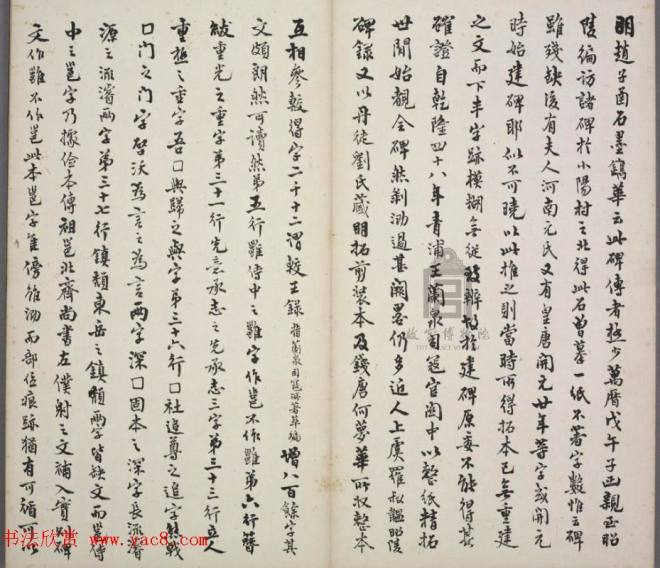 明趙子函石墨鐫華云此碑傳者極少萬曆戊午子函親至昭
陵徧訪諸碑於小陽村之北得此石曾摹一紙不著字數惟云碑
雖殘缺後有夫人河南元氏又有皇唐開元廿年等字或開元
時始建碑耶似不可曉以此推之則當時所得拓本已無重建
之文而下半字跡模糊無從辨故於建碑原委不能得其
確證自乾隆四十八年青浦王蘭泉司寇官關中以整紙精拓
世間始觀全碑然剝泐過甚闕畧仍多近人上虞羅叔韞昭陵
碑錄又以丹徒劉氏藏明拓剪裝本及錢唐何夢華所收整本
互相參較得字二千十二謂較王錄 指蘭泉司寇所著萃編 增八百餘字其
文頗朗然可讀然第五行雖侍中之雖字作邕不作雖第六行簪
紱重光之重字第三十一行先意承志之先承志三字第三十三行
重極之重字吾囗與歸之與字第三十六行囗社追尊之追字然戰
囗門之門字啓沃為言之為言兩字深囗固本之深字長流濬
源之流濬兩字第三十七行鎮頹東岳之鎮頹兩字皆缺文而
中之邕字乃據倫本傳祖邕北齊尚書左僕射之文補入實則碑
文作雖不作邕此本邕字隹傍雖泐而部位痕跡猶有可
书法欣赏 www.yac8.com